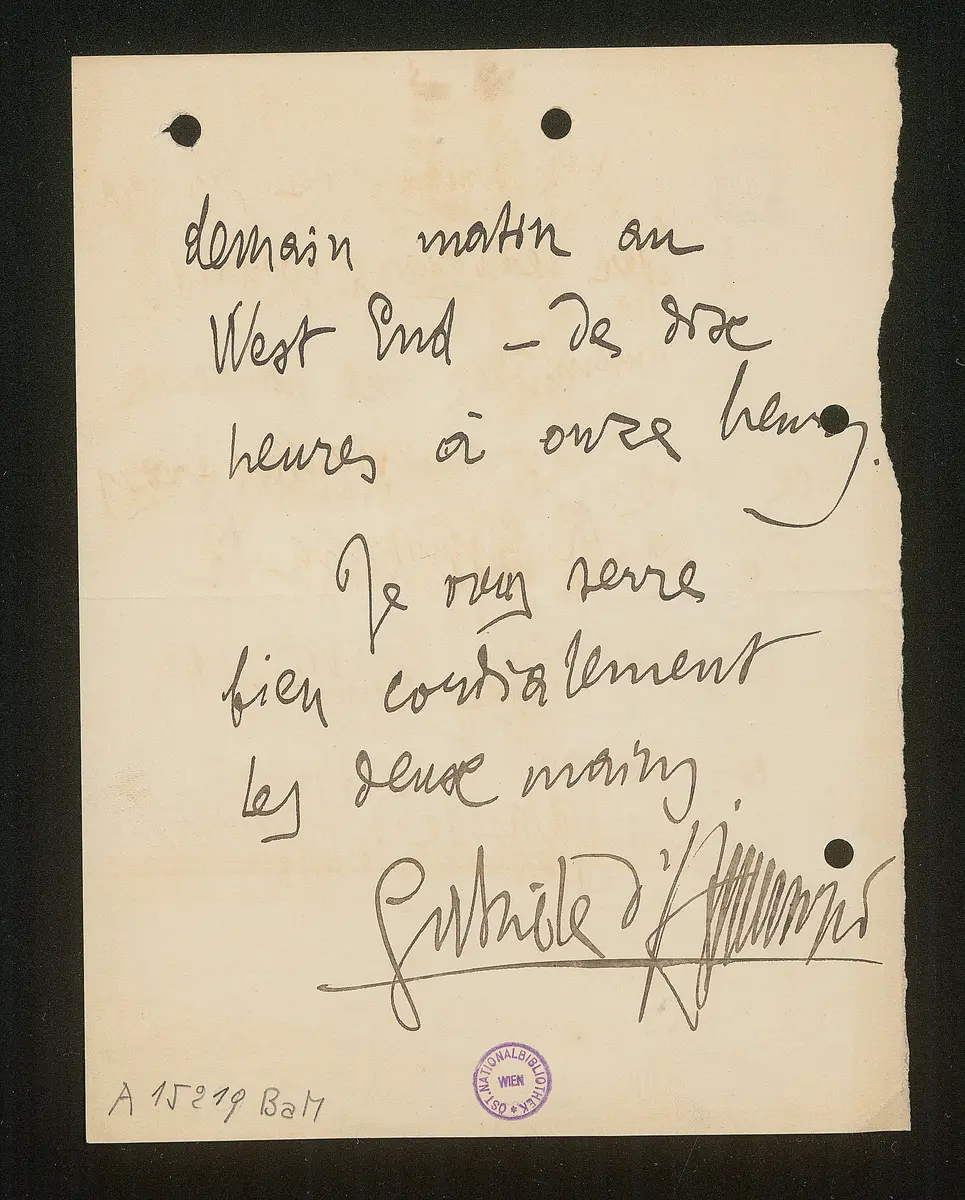 demain matin au
West End – de dix
heures à onze heures.
Je vous serre
bien cordialement
les deux mains
Gabriele d'Annunzio
ÖST. NATIONALBIBLIOTHEK * WIEN
A 15219 BaM